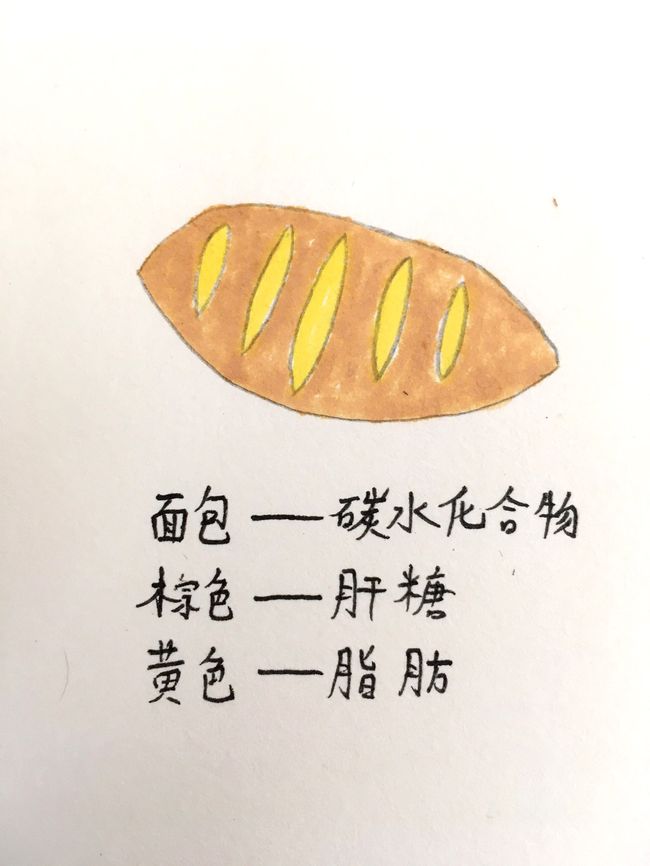 面包——碳水化合物
棕色——肝糖
黄色——脂肪